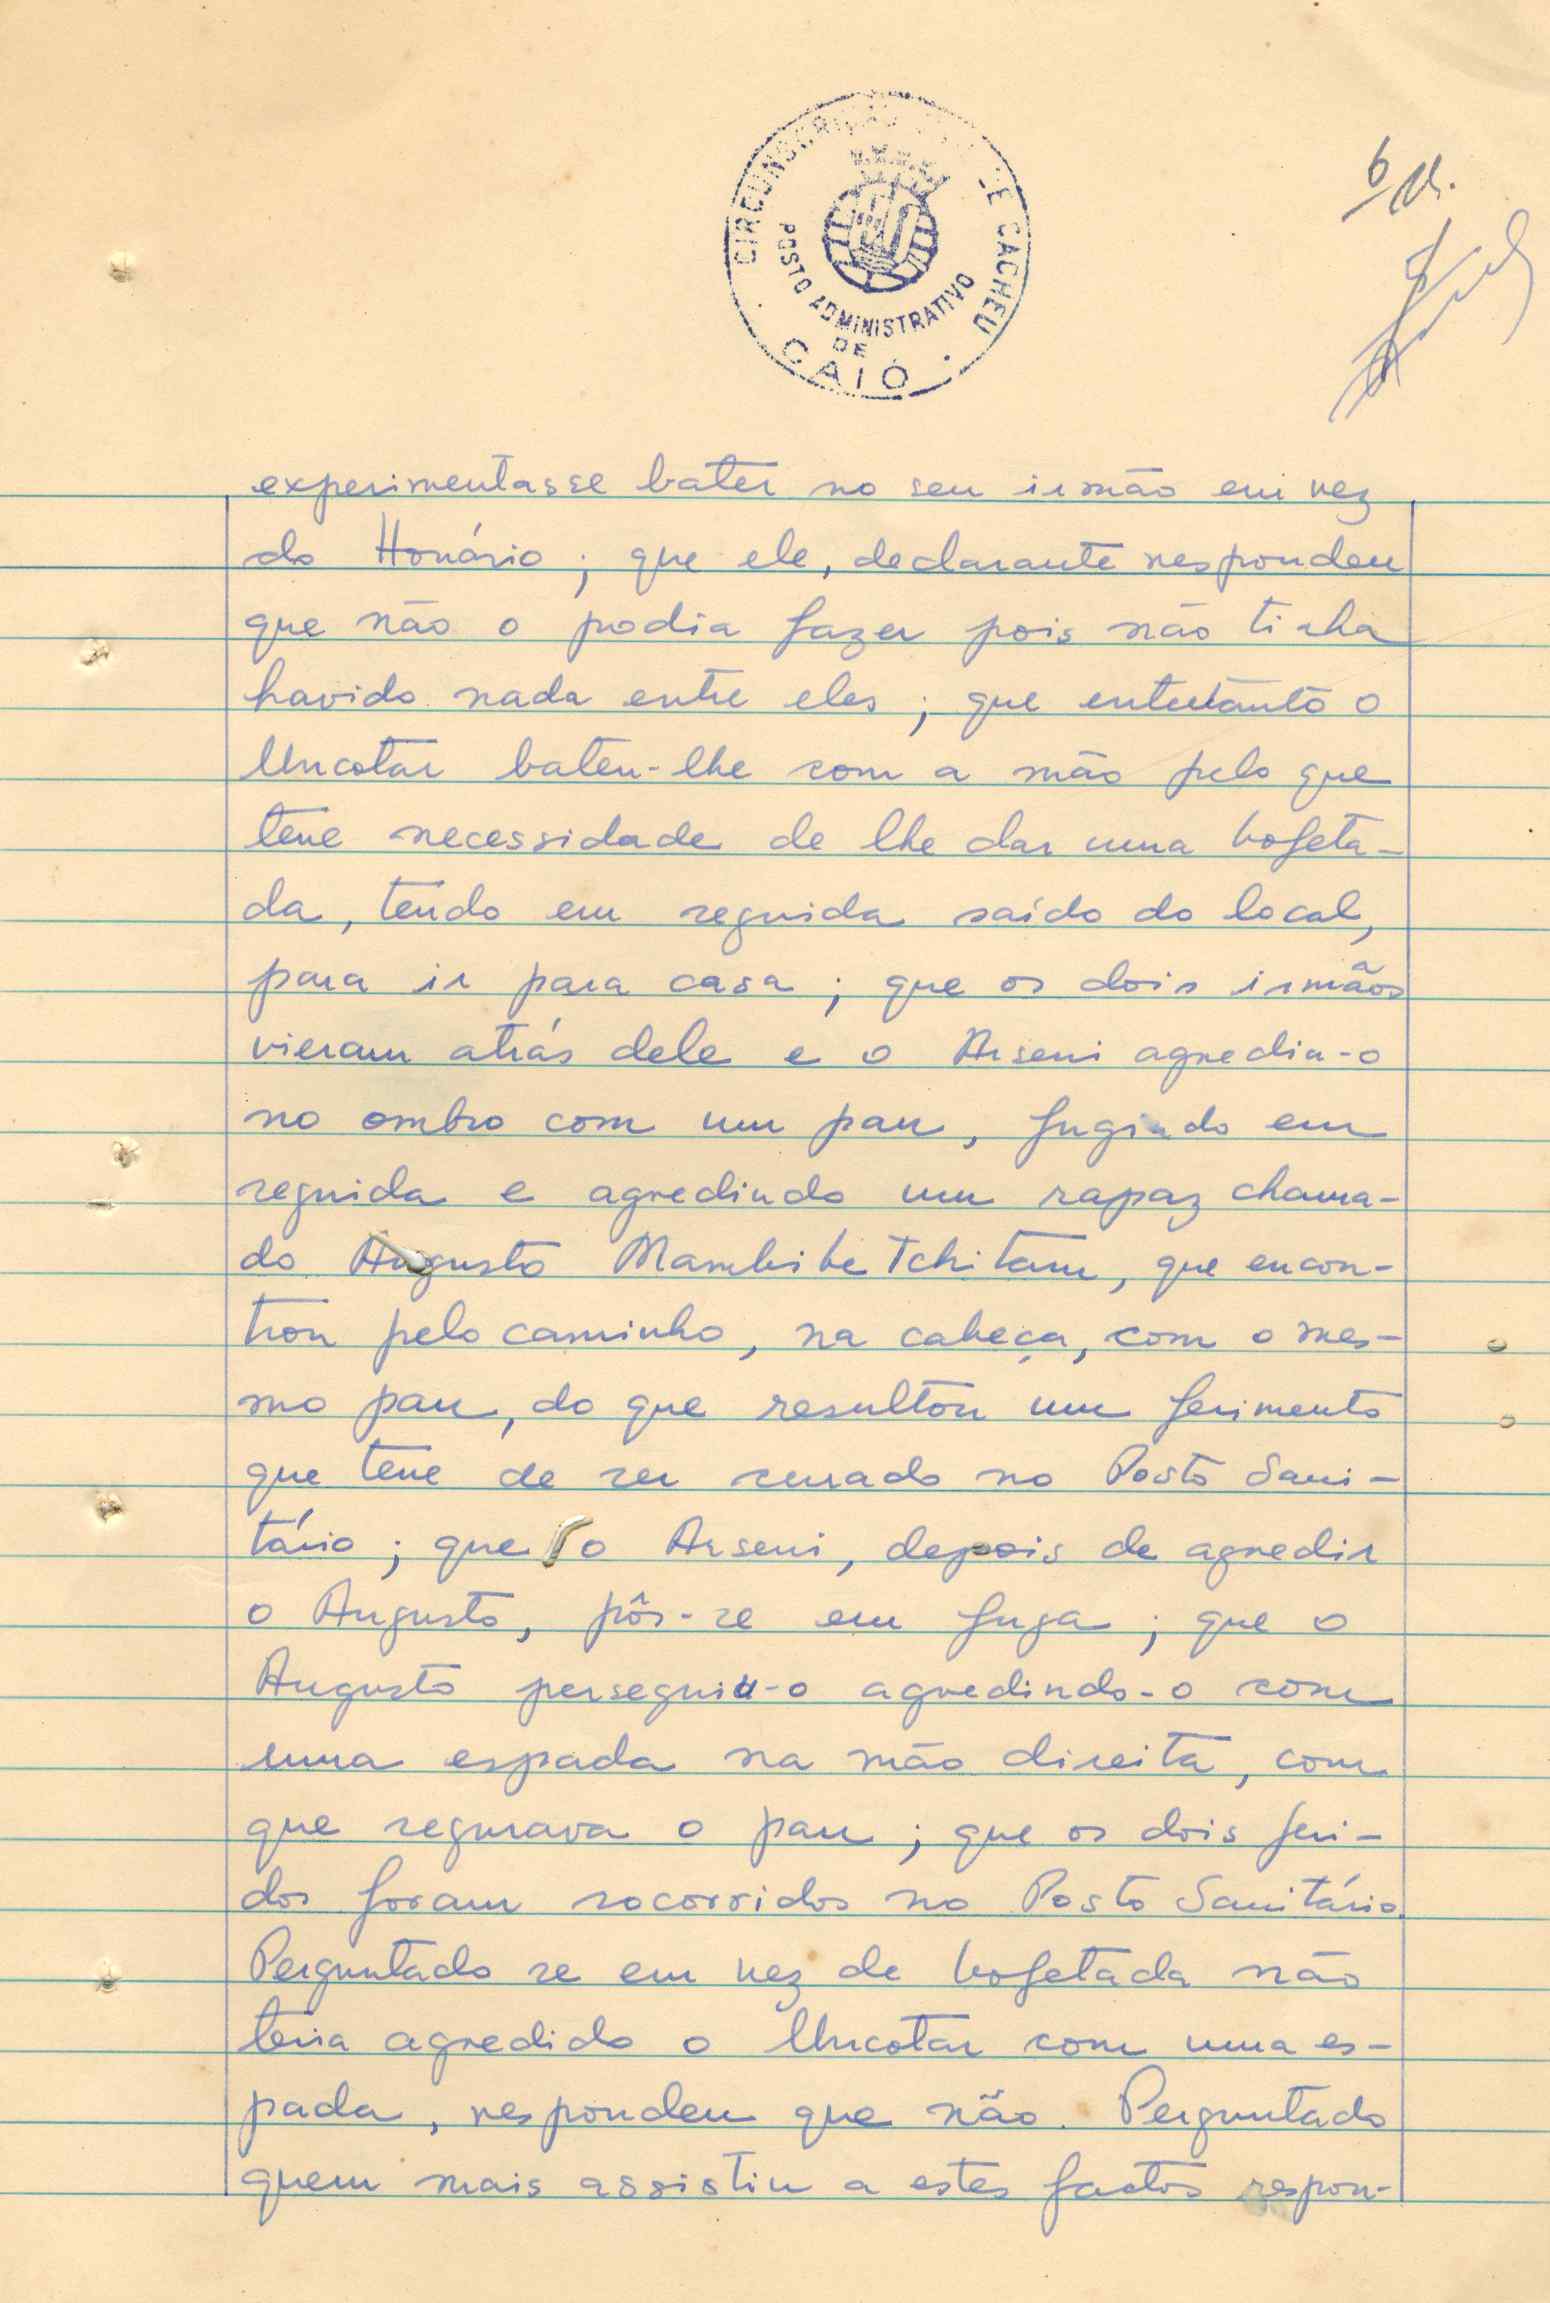 CIRCUNSCRIÇÃO DE CACHEU
POSTO ADMINISTRATIVO
DE
CAIÓ
6
experimentasse bater no seu irmão em vez
do Honório; que ele, declarante respondeu
que não o podia fazer pois não tinha
havido nada entre eles; que entretanto o
Uncotar bateu-lhe com a mão pelo que
teve necessidade de lhe dar uma bofeta-
da, tendo em seguida saído do local,
para ir para casa; que os dois irmãos
vieram atrás dele e o Arseni agrediu-o
no ombro com um pau, fugindo em
seguida e agredindo um rapaz chama-
do Augusto Mambibe Tchitam, que encon-
trou pelo caminho, na cabeça, com o mes-
mo pau, do que resultou um ferimento
que teve de ser curado no Posto Sani-
tário; que o Arseni, depois de agredir
o Augusto, pôs-se em fuga; que o
Augusto perseguiu-o agredindo-o com
uma espada na mão direita, com
que segurava o pau; que os dois feri-
dos foram socorridos no Posto Sanitário.
Perguntado se em vez de bofetada não
teria agredido o Uncotar com uma es-
pada, respondeu que não. Perguntado
quem mais assistiu a estes factos respon-